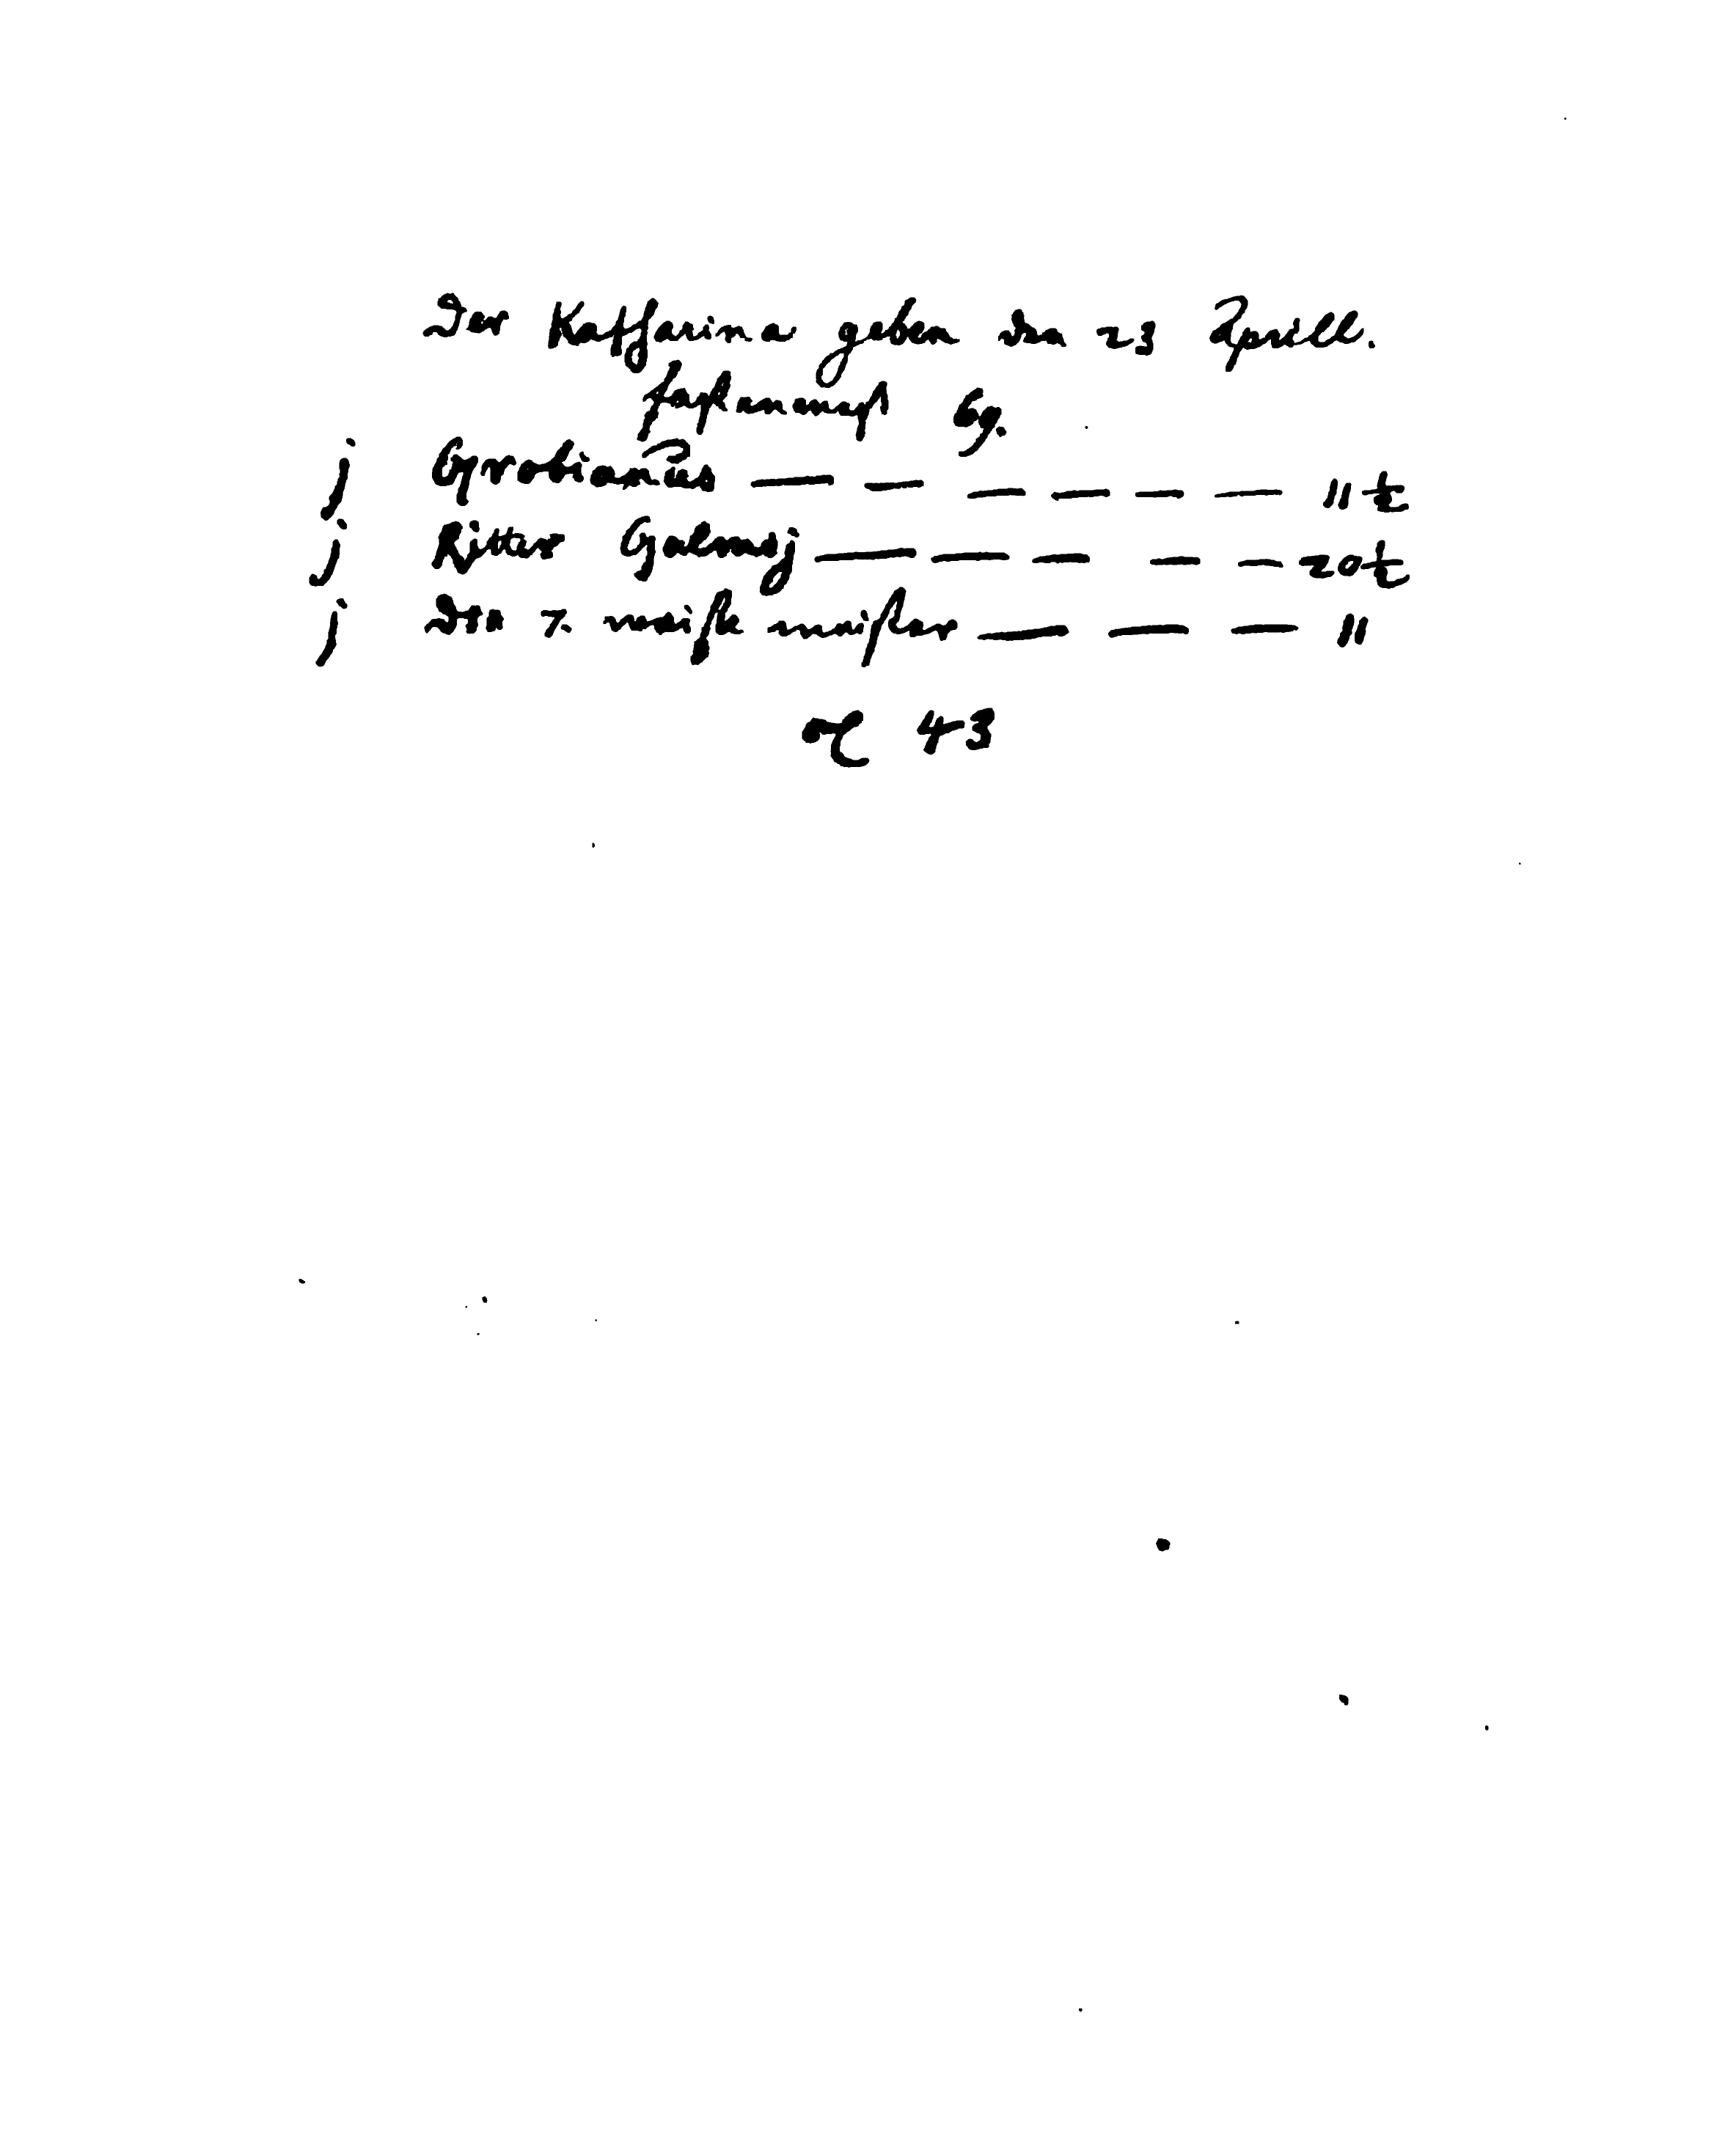 Der Katharina geben den 23 Aprill.
faßtnnacht 69.
j Grobianus — — — — — — 11 ½
j Ritter Galmy — — — — — 20 ½
j Den 7. weiße meister — — — 11
fl 43